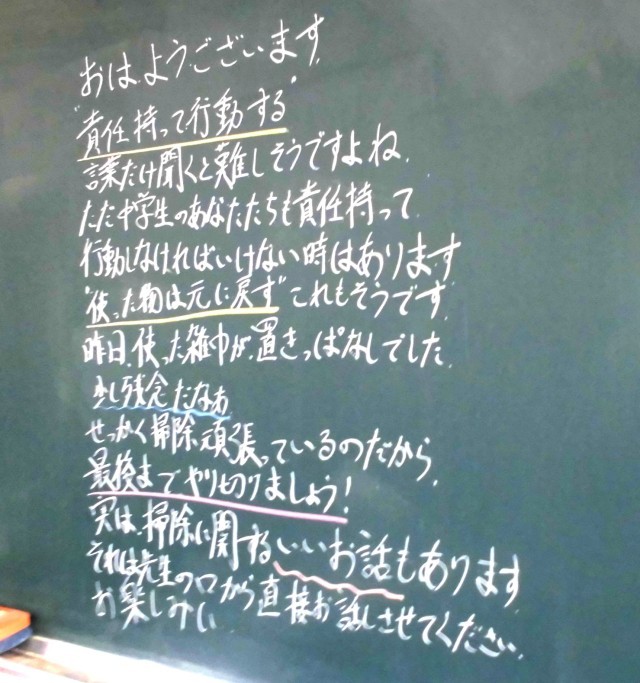 おはようございます
"責任持って行動する"
言葉だけ聞くと難しそうですよね.
ただ中学生のあなたたちも責任持って
行動しなければいけない時はあります
"使った物は元に戻す"これもそうです.
昨日、使った雑巾が、置きっぱなしでした.
少し残念だなぁ
せっかく掃除頑張っているのだから、
最後までやり切りましょう!
実は、掃除に関するいいお話もあります
それは先生の口から直接お話しさせてください.
お楽しみに